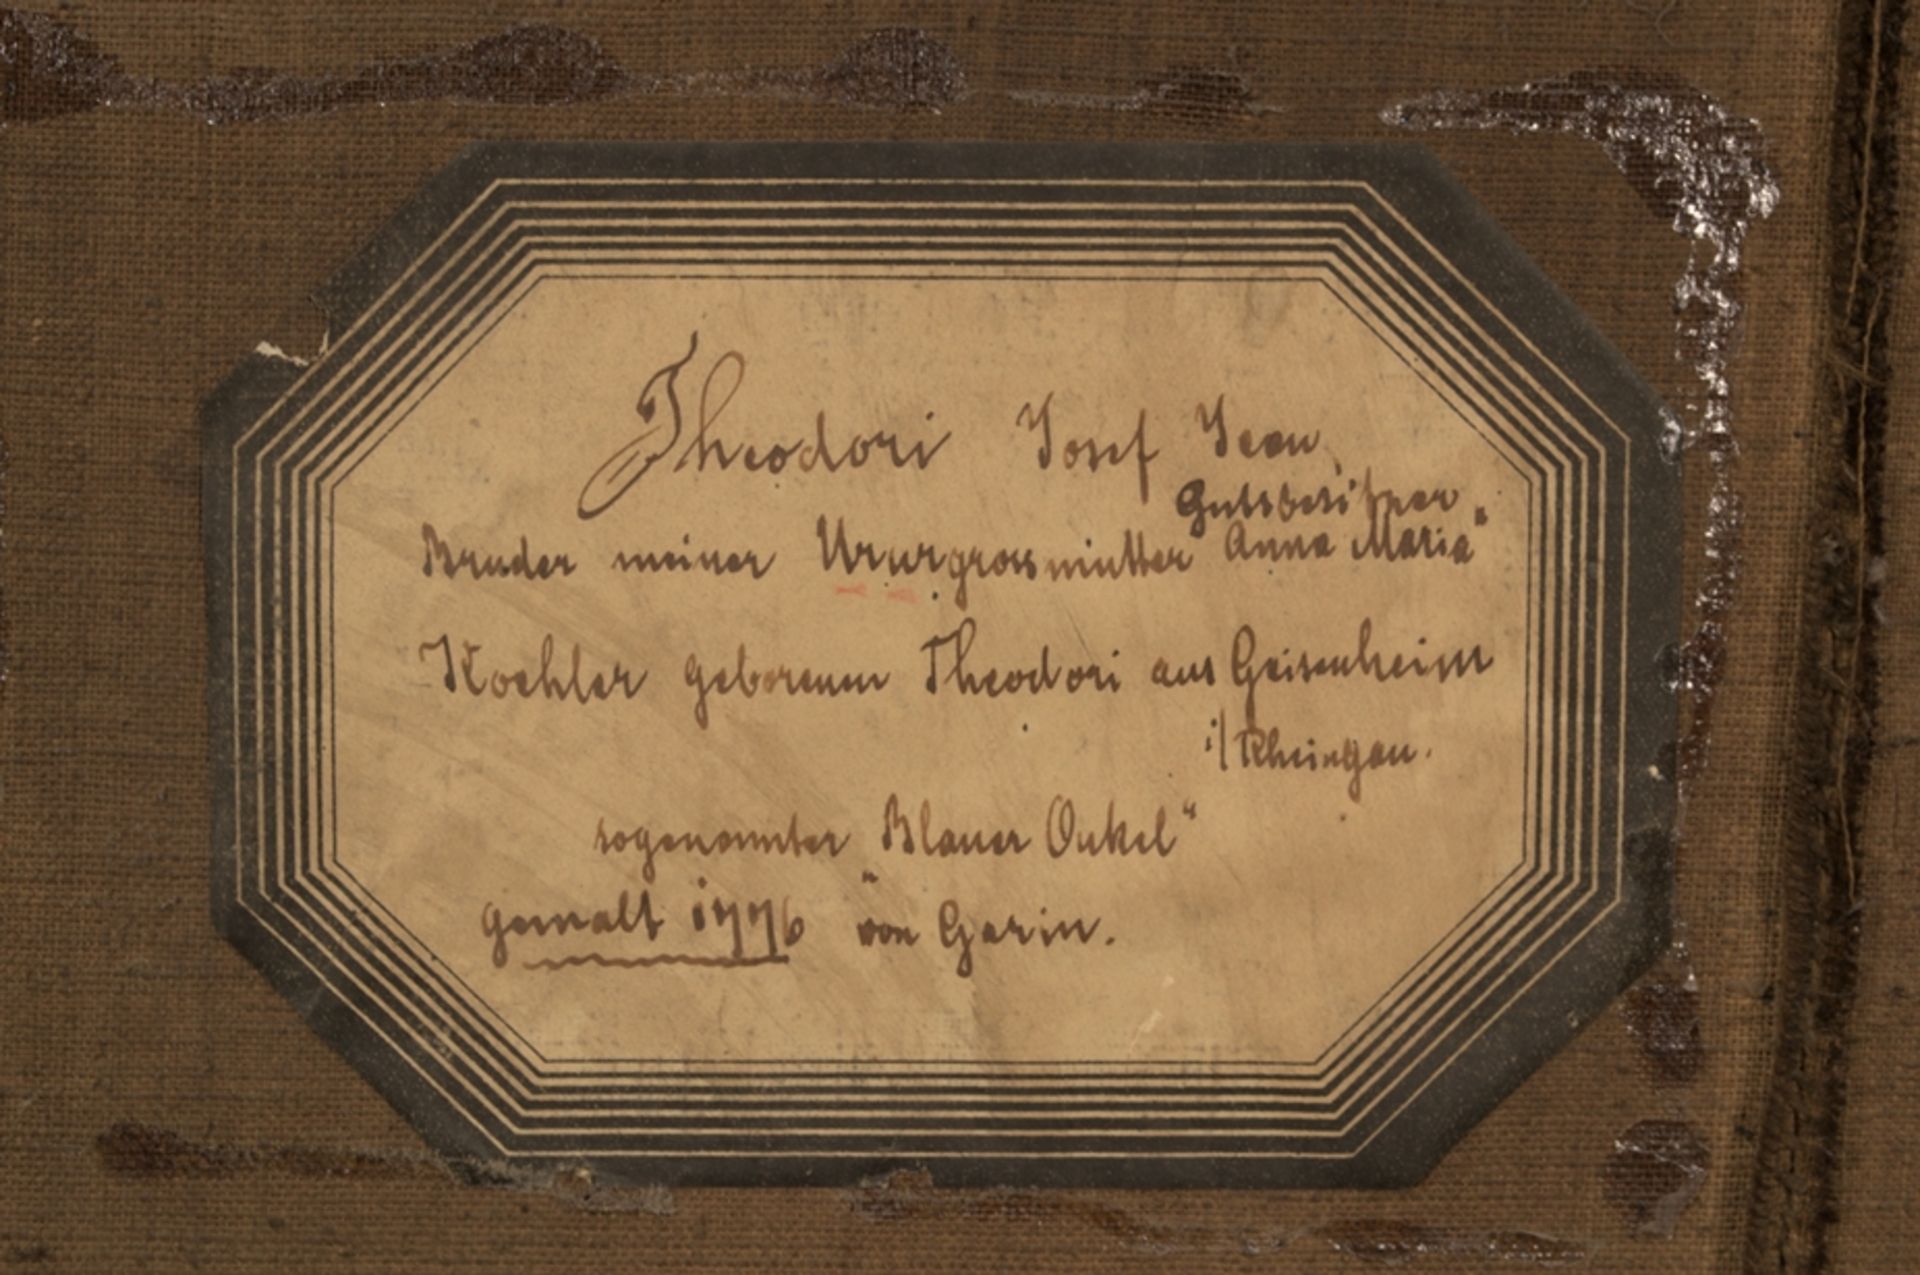 Theodori Josef Jean
Gutsbesitzer
Bruder meiner Ururgrossmutter "Anna Maria"
Koehler geborenen Theodori aus Geisenheim
i/Rheingau.
sogenannter "Blauer Onkel"
gemalt 1776 von Gerin.